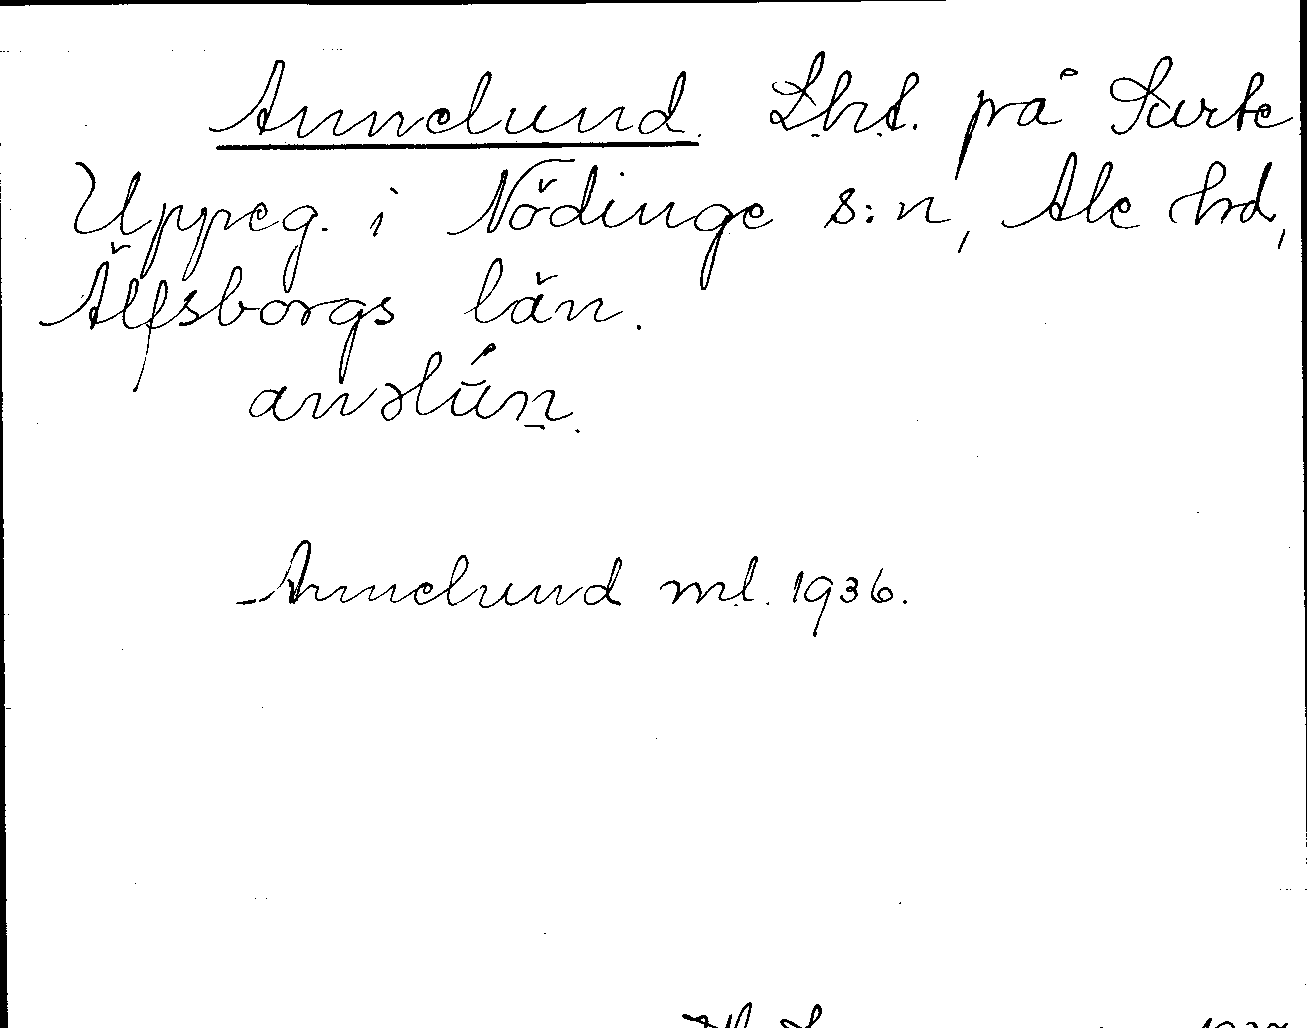 Annelund. Lht. på Surte
Uppeg. i Nödinge s:n, Ale hd,
Älfsborgs län.
anəlún.
Annelund ml. 1936.